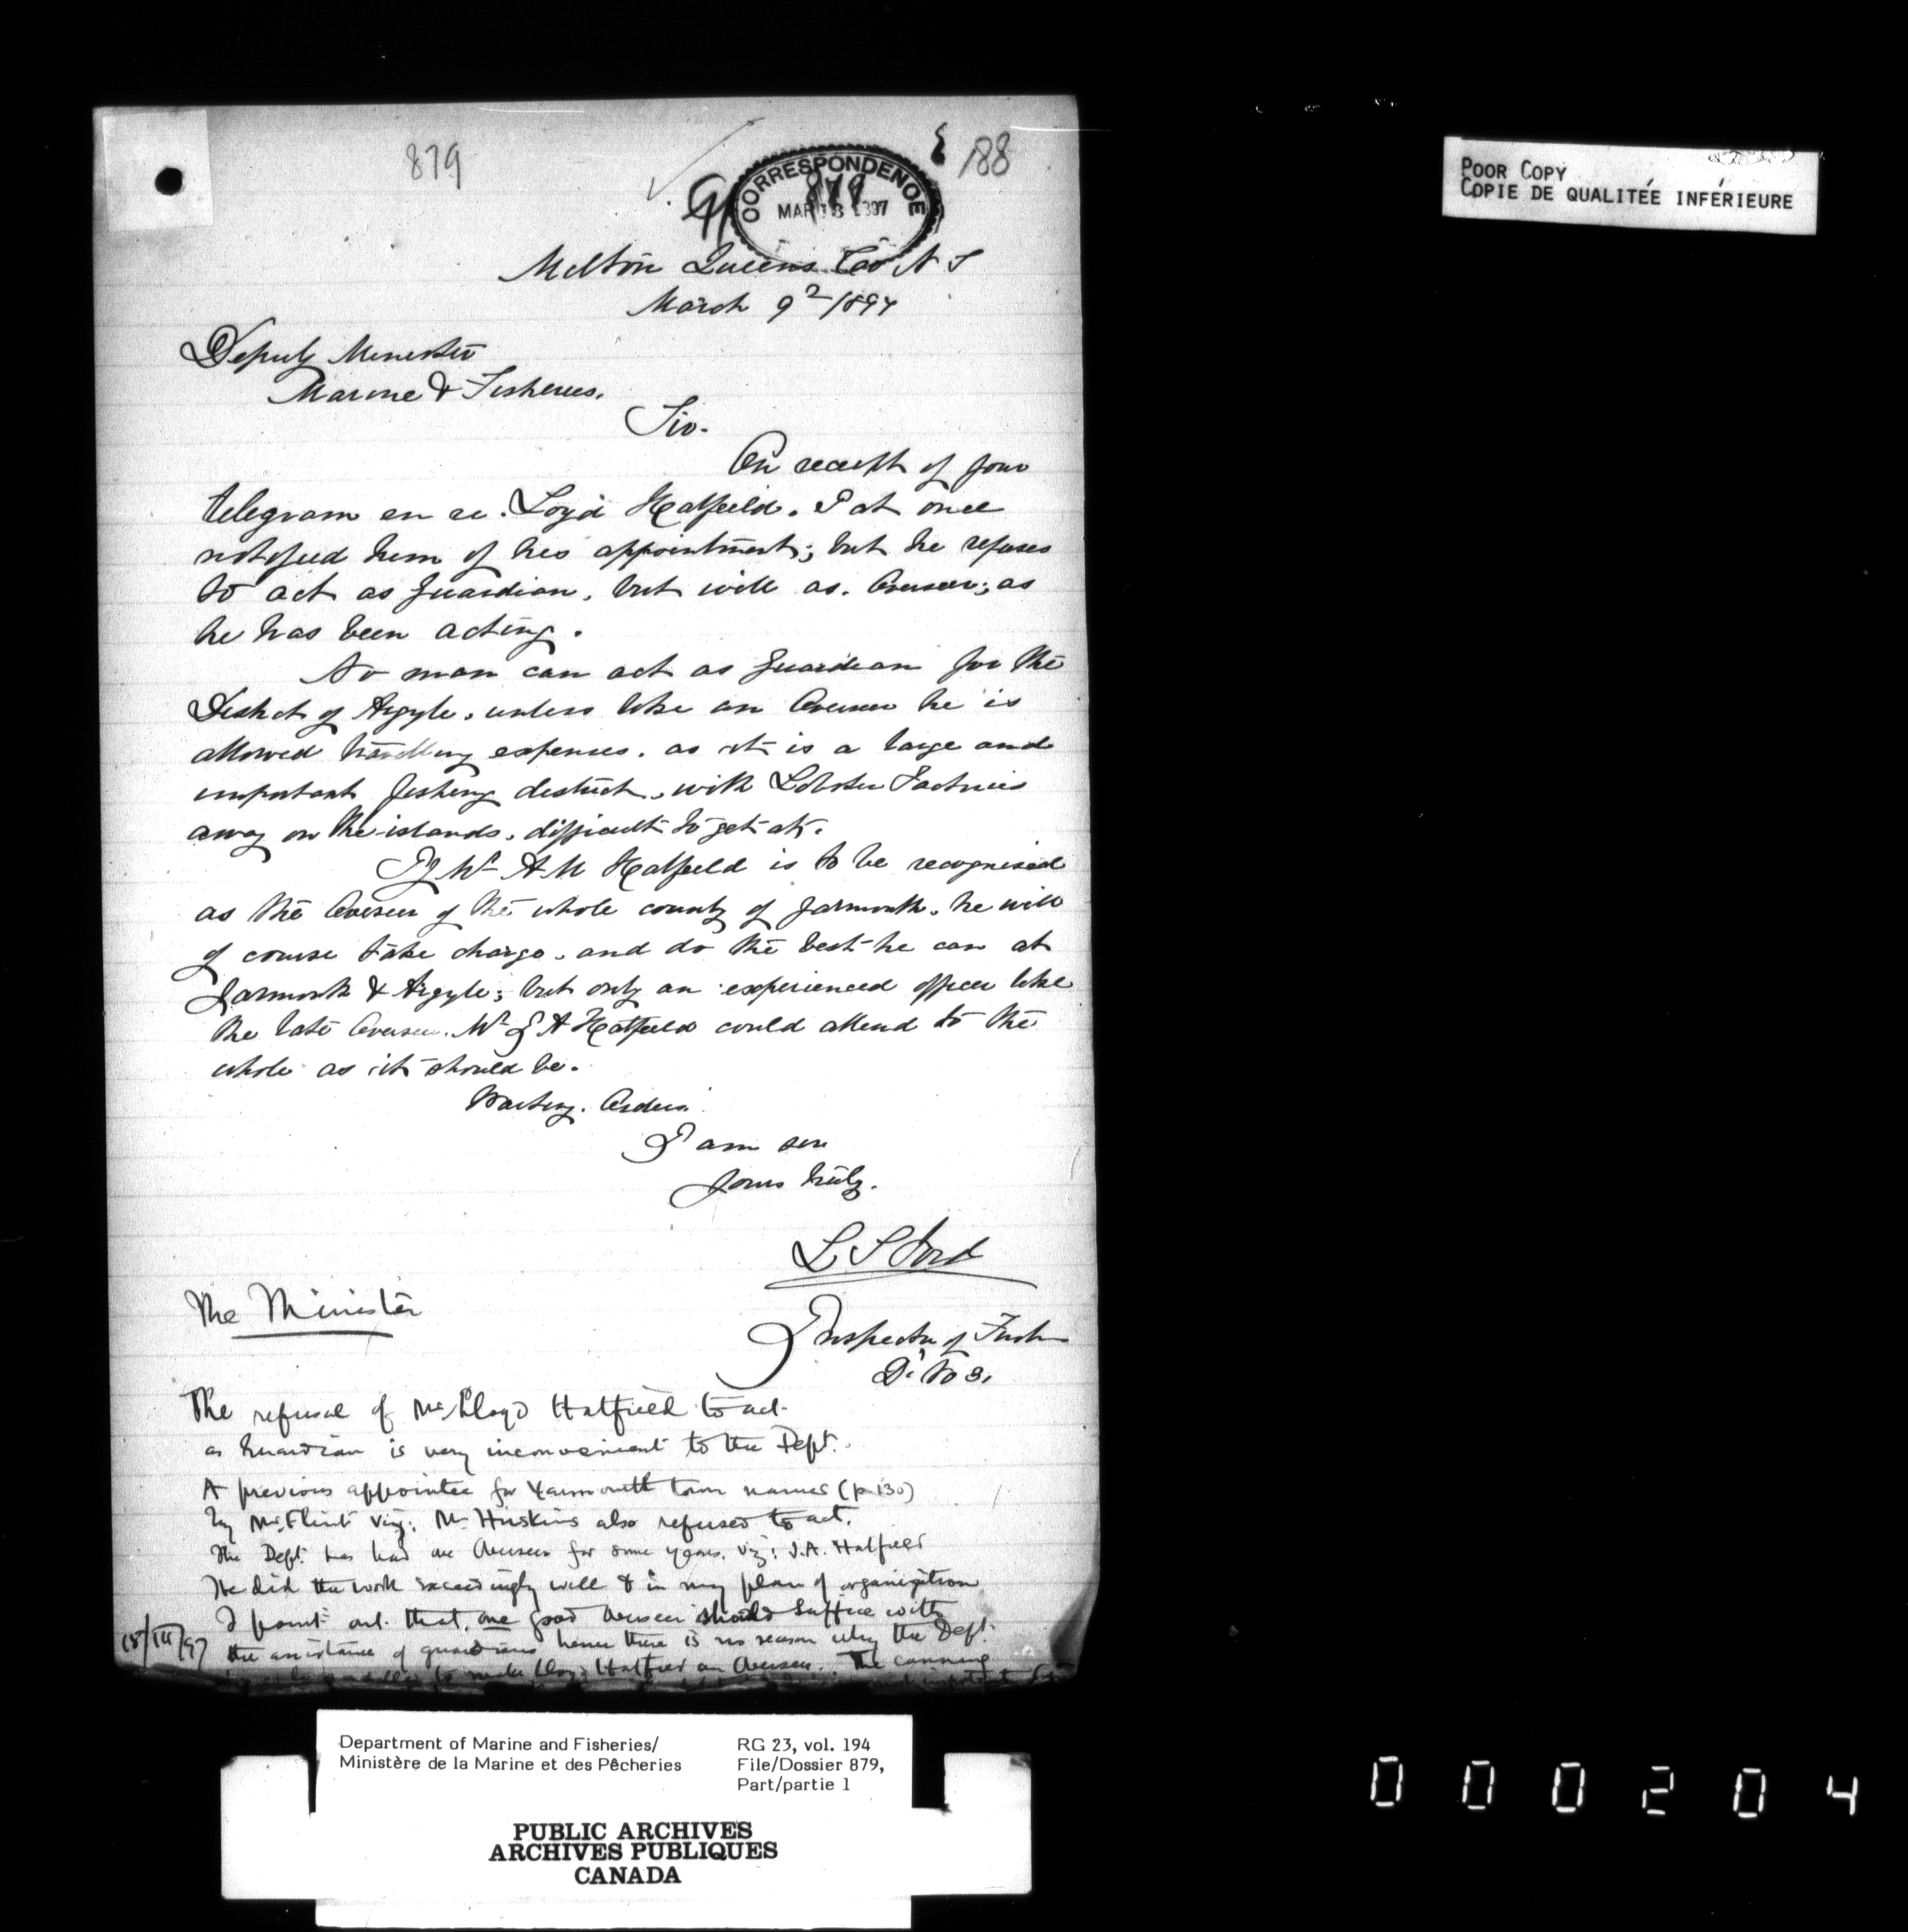 879
188
CORRESPONDENCE
879
MAR 13 1897
Milton Queens Co N S
March 9th/1897
Deputy Minister
Marine & Fisheries.
Sir.
On receipt of your
telegram en re. Loyd Hatfield. I at once
notified him of his appointment; but he refuses
to act as Guardian, but will as. Overseer; as
he has been acting.
No man can act as Guardian for the
District of Argyle, unless like an Overseer he is
allowed travelling expenses. as it is a large and
important fishing district, with Lobster Factories
away on the islands, difficult to get at.
If Mr A M Hatfield is to be recognised
as the Overseer of the whole county of Yarmouth, he will
of course take charge, and do the best he can at
Yarmouth & Argyle; but only an experienced officer like
the late Overseer. Mr J A Hatfield could attend to the
whole as it should be.
Waiting. Orders.
I am sir
Yours truly.
L S Ford
Inspector of Fish
D. No 3.
The Minister
The refusal of Mr Lloyd Hatfield to act
as Guardian is very inconvenient to the Dept.
A previous appointee for Yarmouth town named (p 130)
by Mr Flint viz: Mr Huskins also refused to act.
The Dept. has had one Overseer for some years. viz: J.A. Hatfield
He did the work exceedingly well & in my plan of organization
I point out that one good Overseer should suffice with
18/III/97 the assistance of guardians hence there is no reason why the Dept.
to make Lloyd Hatfield an Overseer. The canning
POOR COPY
COPIE DE QUALITÉE INFÉRIEURE
Department of Marine and Fisheries/
Ministère de la Marine et des Pêcheries
RG 23, vol. 194
File/Dossier 879,
Part/partie 1
PUBLIC ARCHIVES
ARCHIVES PUBLIQUES
CANADA
000204